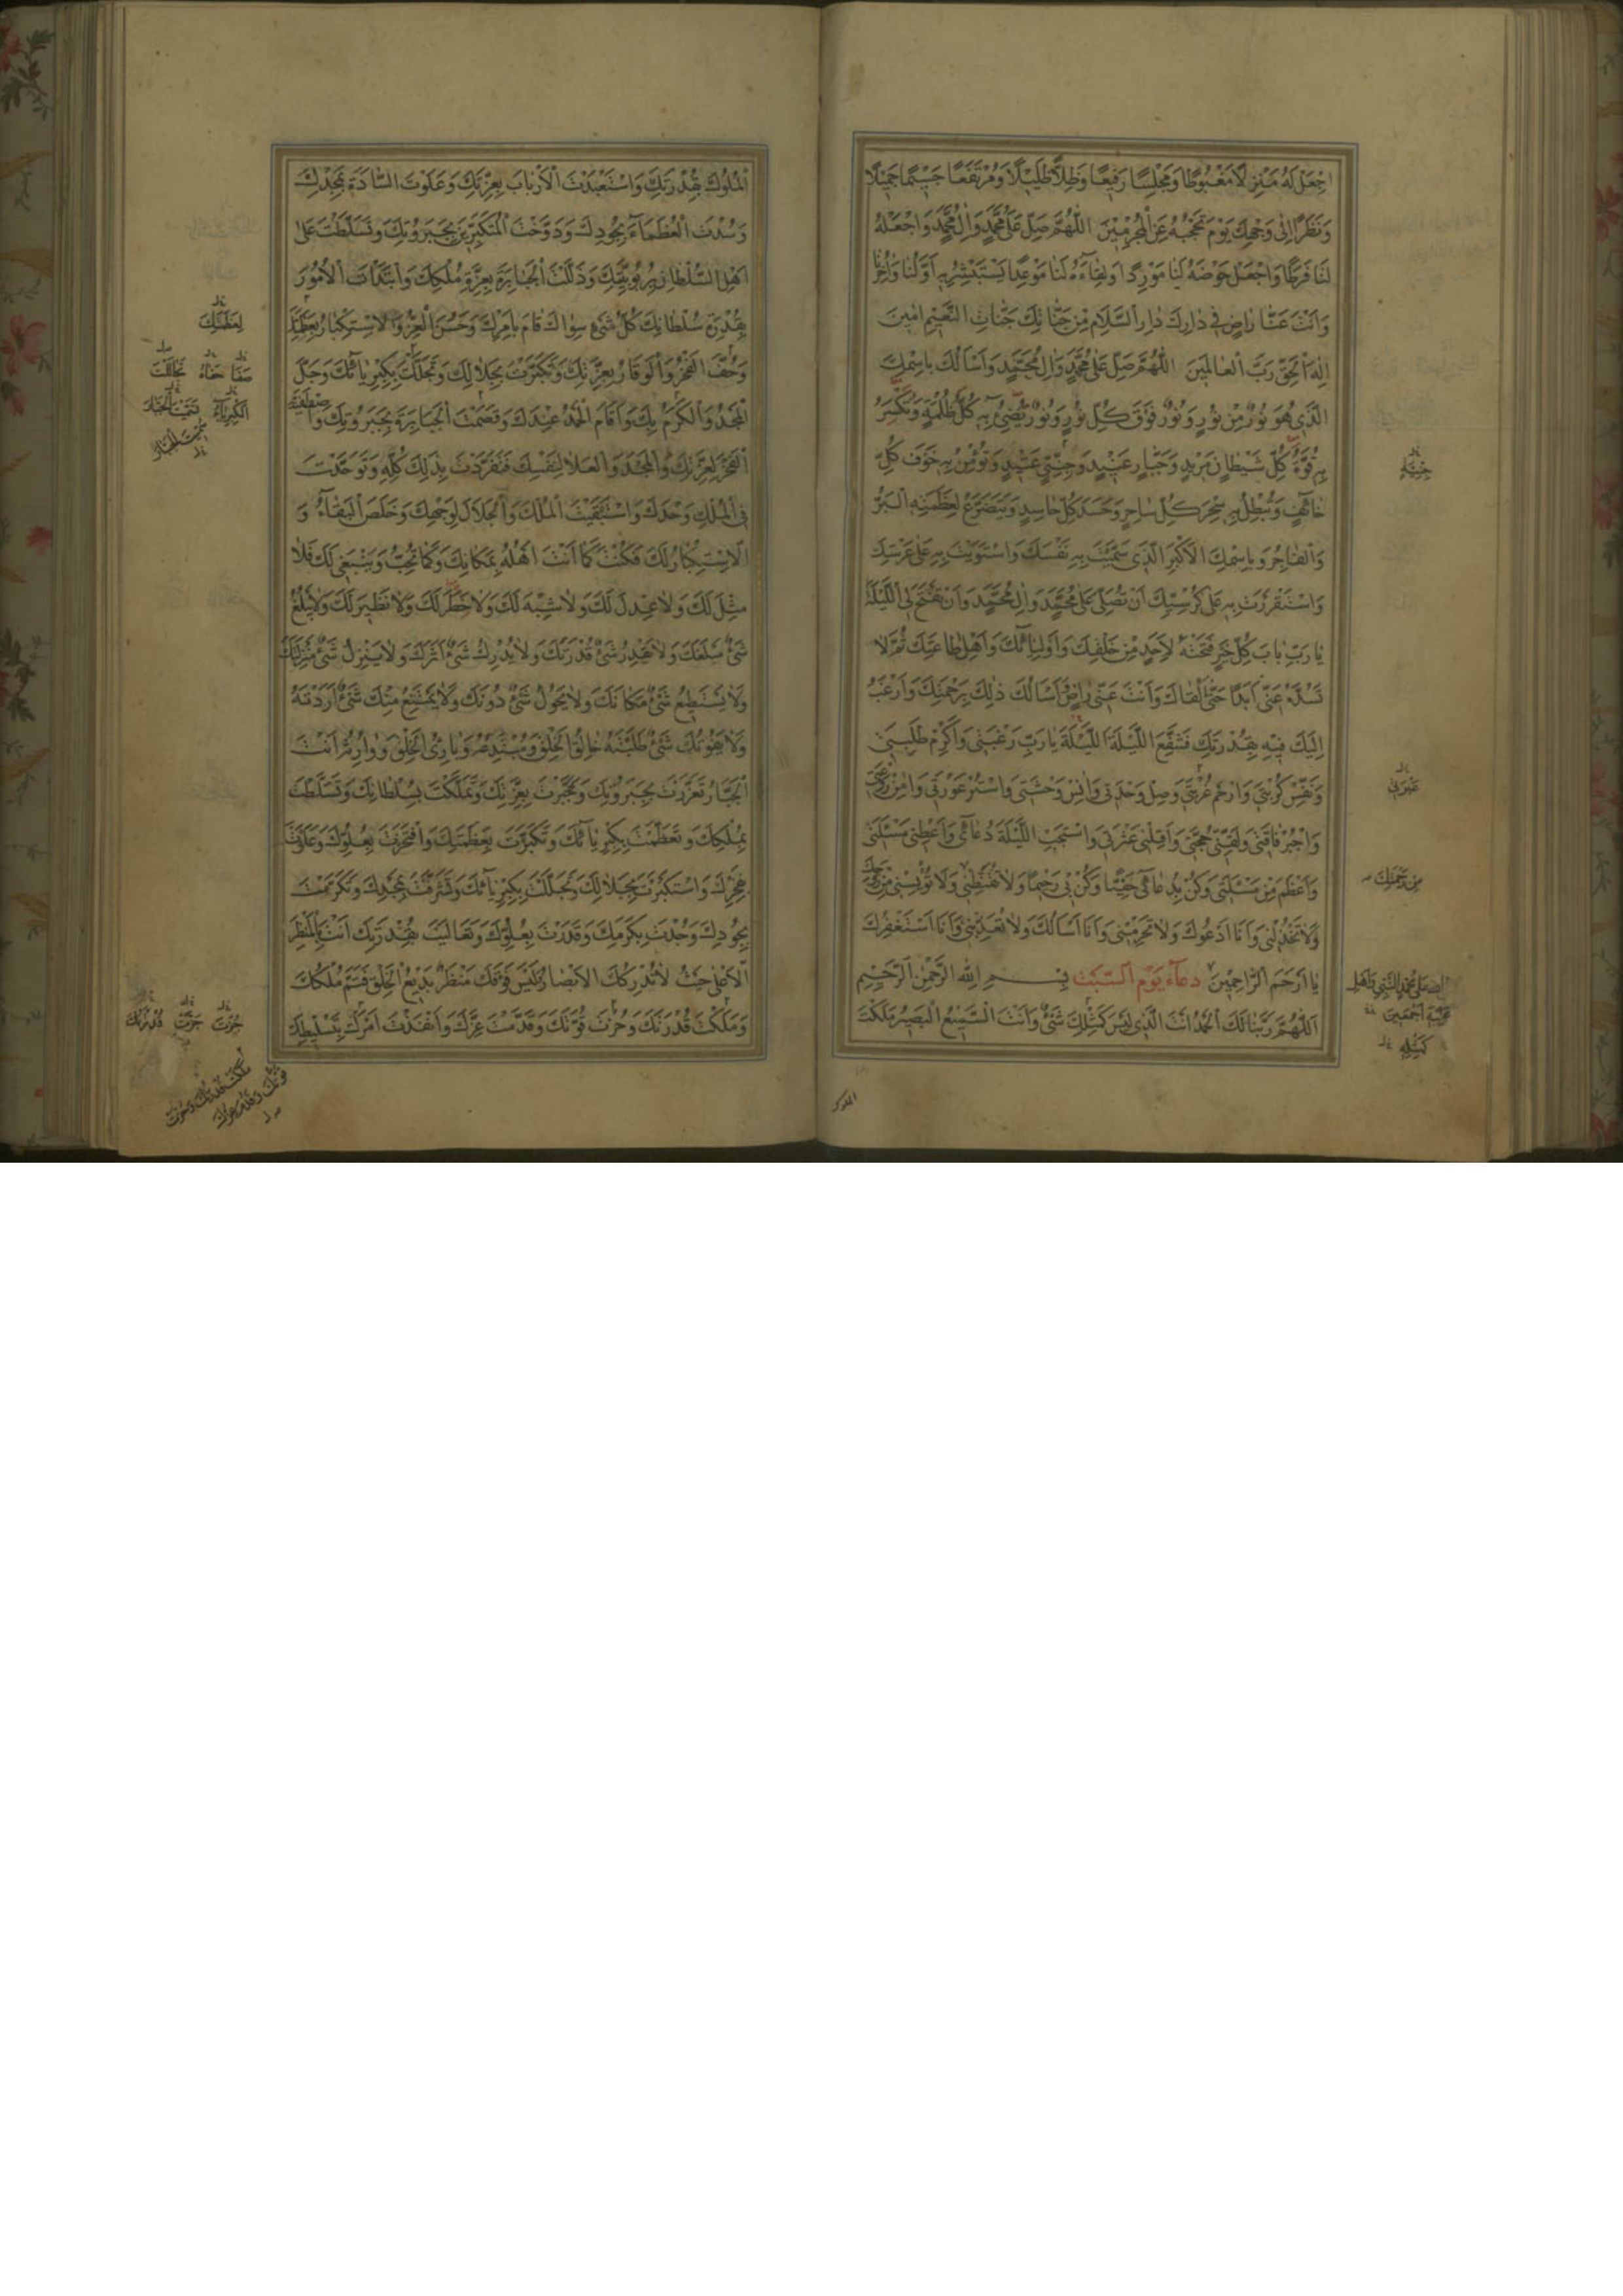 اجْعَلْ لَهُ مَنْزِلًا مَغْبُوطًا وَمَجْلِسًا رَفِيعًا وَظِلًّا ظَلِيلًا وَمُرْتَفَعًا جَسِيمًا جَمِيلًا
وَنَظَرًا اِلٰى وَجْهِكَ يَوْمَ تَحْجُبُهُ عَنِ الْمُجْرِمِينَ اللّٰهُمَّ صَلِّ عَلٰى مُحَمَّدٍ وَاٰلِ مُحَمَّدٍ وَاجْعَلْهُ
لَنَا فَرَطًا وَاجْعَلْ حَوْضَهُ لَنَا مَوْرِدًا وَلِقَاءَهُ لَنَا مَوْعِدًا يَسْتَبْشِرُ بِهِ اَوَّلُنَا وَاٰخِرُنَا
وَاَنْتَ عَنَّا رَاضٍ فِي دَارِكَ دَارِ السَّلَامِ مِنْ جَنَّاتِكَ جَنَّاتِ النَّعِيمِ اٰمِينَ
اِلٰهَ الْحَقِّ رَبَّ الْعَالَمِينَ اللّٰهُمَّ صَلِّ عَلٰى مُحَمَّدٍ وَاٰلِ مُحَمَّدٍ وَاَسْأَلُكَ بِاسْمِكَ
الَّذِي هُوَ نُورٌ مِنْ نُورٍ وَنُورٌ فَوْقَ كُلِّ نُورٍ وَنُورٌ تُضِيءُ بِهِ كُلَّ ظُلْمَةٍ وَتَكْسِرُ
بِهِ قُوَّةَ كُلِّ شَيْطَانٍ مَرِيدٍ وَجَبَّارٍ عَنِيدٍ وَجِنِّيٍّ عَتِيدٍ وَتُؤْمِنُ بِهِ خَوْفَ كُلِّ
خَائِفٍ وَتُبْطِلُ بِهِ سِحْرَ كُلِّ سَاحِرٍ وَحَسَدَ كُلِّ حَاسِدٍ وَيَتَضَرَّعُ لِعَظَمَتِهِ الْبَرُّ
وَالْفَاجِرُ وَبِاسْمِكَ الْاَكْبَرِ الَّذِي سَمَّيْتَ بِهِ نَفْسَكَ وَاسْتَوَيْتَ بِهِ عَلٰى عَرْشِكَ
وَاسْتَقْرَرْتَ بِهِ عَلٰى كُرْسِيِّكَ اَنْ تُصَلِّيَ عَلٰى مُحَمَّدٍ وَاٰلِ مُحَمَّدٍ وَاَنْ تَفْتَحَ لِيَ اللَّيْلَةَ
يَا رَبِّ بَابَ كُلِّ خَيْرٍ فَتَحْتَهُ لِاَحَدٍ مِنْ خَلْقِكَ وَاَوْلِيَائِكَ وَاَهْلِ طَاعَتِكَ ثُمَّ لَا
تَسُدَّهُ عَنِّي اَبَدًا حَتّٰى اَلْقَاكَ وَاَنْتَ عَنِّي رَاضٍ اَسْأَلُكَ ذٰلِكَ بِرَحْمَتِكَ وَاَرْغَبُ
اِلَيْكَ فِيهِ بِقُدْرَتِكَ فَشَفِّعِ اللَّيْلَةَ اللَّيْلَةَ يَا رَبِّ رَغْبَتِي وَاَكْرِمْ طَلِبَتِي
وَنَفِّسْ كُرْبَتِي وَارْحَمْ غُرْبَتِي وَصِلْ وَحْدَتِي وَاٰنِسْ وَحْشَتِي وَاسْتُرْ عَوْرَتِي وَاٰمِنْ رَوْعَتِي
وَاجْبُرْ فَاقَتِي وَلَقِّنِّي حُجَّتِي وَاَقِلْنِي عَثْرَتِي وَاسْتَجِبِ اللَّيْلَةَ دُعَائِي وَاَعْطِنِي مَسْئَلَتِي
وَاَعْظَمَ مِنْ مَسْئَلَتِي وَكُنْ بِدُعَائِي حَفِيًّا وَكُنْ بِي رَحِيمًا وَلَا تُقَنِّطْنِي وَلَا تُؤْيِسْنِي مِنْ رَوْحِكَ
وَلَا تَخْذُلْنِي وَاَنَا اَدْعُوكَ وَلَا تَحْرِمْنِي وَاَنَا اَسْأَلُكَ وَلَا تُعَذِّبْنِي وَاَنَا اَسْتَغْفِرُكَ
يَا اَرْحَمَ الرَّاحِمِينَ دعاء يوم السّبت بِسْمِ اللّٰهِ الرَّحْمٰنِ الرَّحِيمِ
اَللّٰهُمَّ رَبَّنَا لَكَ الْحَمْدُ اَنْتَ الَّذِي لَيْسَ كَمِثْلِكَ شَيْءٌ وَاَنْتَ السَّمِيعُ الْبَصِيرُ مَلَكْتَ
مِنْ رَحْمَتِكَ
كَمِثْلِهِ
الملوك
الْمُلُوكَ بِقُدْرَتِكَ وَاسْتَعْبَدْتَ الْاَرْبَابَ بِعِزَّتِكَ وَعَلَوْتَ السَّادَةَ بِمَجْدِكَ
وَسُدْتَ الْعُظَمَاءَ بِجُودِكَ وَدَوَّخْتَ الْمُتَكَبِّرِينَ بِجَبَرُوتِكَ وَتَسَلَّطْتَ عَلٰى
اَهْلِ السُّلْطَانِ بِرُبُوبِيَّتِكَ وَذَلَّلْتَ الْجَبَابِرَةَ بِعِزَّةِ مُلْكِكَ وَابْتَدَأْتَ الْاُمُورَ
بِقُدْرَةِ سُلْطَانِكَ كُلُّ شَيْءٍ سِوَاكَ قَامَ بِاَمْرِكَ وَحَسُنَ الْعِزُّ وَالْاِسْتِكْبَارُ بِعَظَمَتِكَ
الْفَخْرُ وَالْوَقَارُ بِعِزَّتِكَ وَتَكَبَّرْتَ بِجَلَالِكَ وَتَجَلَّلْتَ بِكِبْرِيَائِكَ وَجَلَّ
الْمَجْدُ وَالْكَرَمُ بِكَ وَاَقَامَ الْحَمْدُ عِنْدَكَ وَقَصَمْتَ الْجَبَابِرَةَ بِجَبَرُوتِكَ وَاصْطَفَيْتَ
الْفَخْرَ لِعِزَّتِكَ وَالْمَجْدَ وَالْعُلَا لِنَفْسِكَ فَتَفَرَّدْتَ بِذٰلِكَ كُلِّهِ وَتَوَحَّدْتَ
فِي الْمُلْكِ وَحْدَكَ وَاسْتَبْقَيْتَ الْمُلْكَ وَالْجَلَالَ لِوَجْهِكَ وَخَلَصَ الْبَقَاءُ وَ
الْاِسْتِكْبَارُ لَكَ فَكُنْتَ كَمَا اَنْتَ اَهْلُهُ بِمَكَانِكَ وَكَمَا تُحِبُّ وَيَنْبَغِي لَكَ فَلَا
مِثْلَ لَكَ وَلَا عِدْلَ لَكَ وَلَا شِبْهَ لَكَ وَلَا خَطَرَ لَكَ وَلَا نَظِيرَ لَكَ وَلَا يَبْلُغُ
شَيْءٌ مَبْلَغَكَ وَلَا يَقْدِرُ شَيْءٌ قُدْرَتَكَ وَلَا يُدْرِكُ شَيْءٌ اَثَرَكَ وَلَا يَنْزِلُ شَيْءٌ مَنْزِلَتَكَ
وَلَا يَسْتَطِيعُ شَيْءٌ مَكَانَكَ وَلَا يَحُولُ شَيْءٌ دُونَكَ وَلَا يَمْتَنِعُ مِنْكَ شَيْءٌ اَرَدْتَهُ
وَلَا يَفُوتُكَ شَيْءٌ طَلَبْتَهُ خَالِقُ الْخَلْقِ وَمُبْتَدِعُهُ وَبَارِئُ الْخَلْقِ وَوَارِثُهُ اَنْتَ
الْجَبَّارُ تَعَزَّزْتَ بِجَبَرُوتِكَ وَتَجَبَّرْتَ بِعِزَّتِكَ وَتَمَلَّكْتَ بِسُلْطَانِكَ وَتَسَلَّطْتَ
بِمُلْكِكَ وَتَعَظَّمْتَ بِكِبْرِيَائِكَ وَتَكَبَّرْتَ بِعَظَمَتِكَ وَافْتَخَرْتَ بِعُلُوِّكَ وَعَلَوْتَ
بِفَخْرِكَ وَاسْتَكْبَرْتَ بِجَلَالِكَ وَتَجَلَّلْتَ بِكِبْرِيَائِكَ وَتَشَرَّفْتَ بِمَجْدِكَ وَتَكَرَّمْتَ
بِجُودِكَ وَجُدْتَ بِكَرَمِكَ وَقَدَرْتَ بِعُلُوِّكَ وَتَعَالَيْتَ بِقُدْرَتِكَ اَنْتَ بِالْمَنْظَرِ
الْاَعْلٰى حَيْثُ لَا تُدْرِكُكَ الْاَبْصَارُ وَلَيْسَ فَوْقَكَ مَنْظَرٌ بَدِيعُ الْخَلْقِ فَتَمَّ مُلْكُكَ
وَمَلَكْتَ قُدْرَتَكَ وَحُزْتَ قُوَّتَكَ وَقَدَّمْتَ عِزَّكَ وَاَنْفَذْتَ اَمْرَكَ بِتَسْلِيطِكَ
لِعَظَمَتِكَ